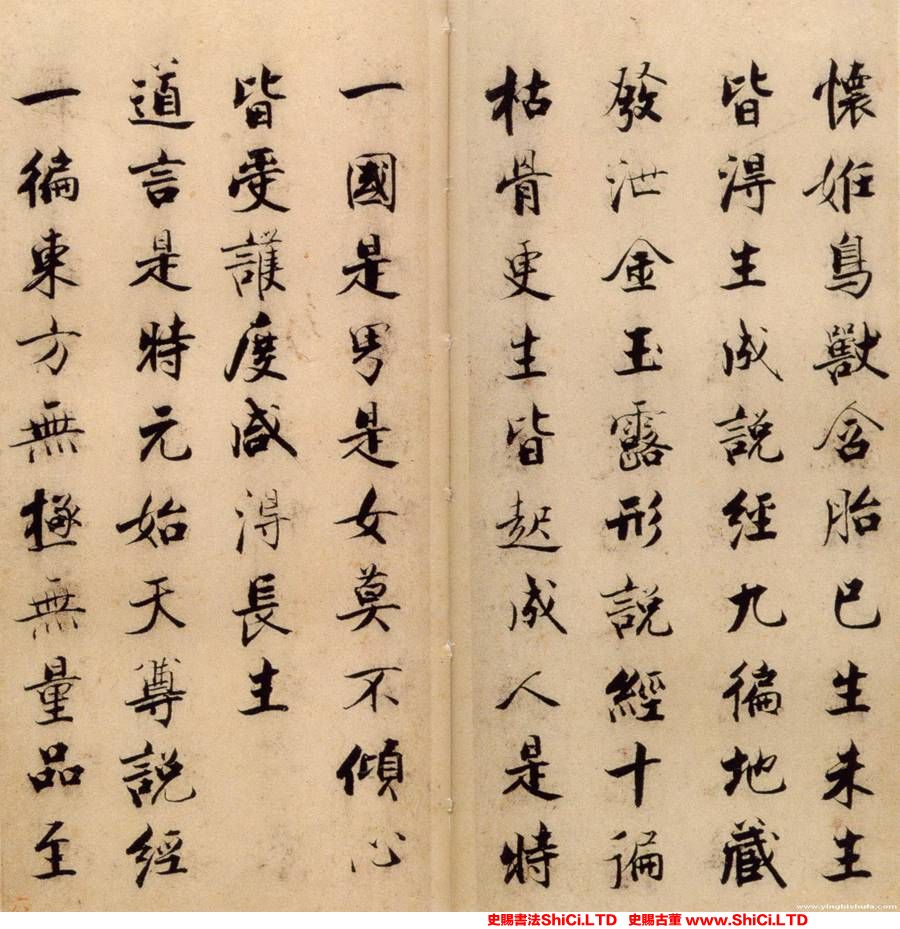 懷姙鳥獸含胎已生未生
皆得生成説經九徧地藏
發泄金玉露形説經十徧
枯骨更生皆起成人是時
一國是男是女莫不傾心
皆受護度咸得長生
道言是時元始天尊説經
一徧東方無極無量品至
www.yingbishufa.com
史賜書法ShiCi.LTD 史賜古董 www.ShiCi.LTD